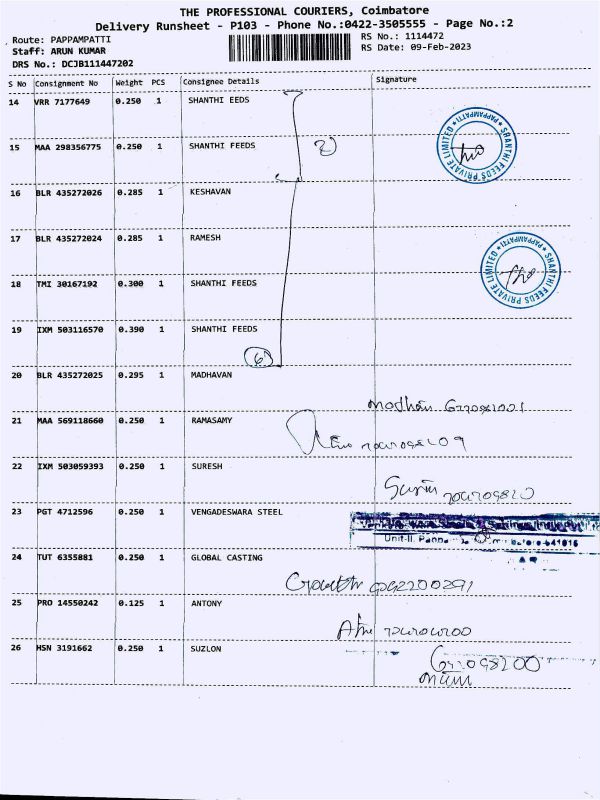 THE PROFESSIONAL COURIERS, Coimbatore
Delivery Runsheet - P103 - Phone No.:0422-3505555 - Page No.:2
Route: PAPPAMPATTI RS No.: 1114472
Staff: ARUN KUMAR RS Date: 09-Feb-2023
DRS No.: DCJB111447202
S No Consignment No Weight PCS Consignee Details Signature
14 VRR 7177649 0.250 1 SHANTHI EEDS
SHANTHI FEEDS PRIVATE LIMITED * PAPPAMPATTI *
15 MAA 298356775 0.250 1 SHANTHI FEEDS 2)
16 BLR 435272026 0.285 1 KESHAVAN
17 BLR 435272024 0.285 1 RAMESH
SHANTHI FEEDS PRIVATE LIMITED * PAPPAMPATTI *
18 TMI 30167192 0.300 1 SHANTHI FEEDS
19 IXM 503116570 0.390 1 SHANTHI FEEDS
6
20 BLR 435272025 0.295 1 MADHAVAN
21 MAA 569118660 0.250 1 RAMASAMY
22 IXM 503059393 0.250 1 SURESH
23 PGT 4712596 0.250 1 VENGADESWARA STEEL
Unit-II.
24 TUT 6355881 0.250 1 GLOBAL CASTING
25 PRO 14550242 0.125 1 ANTONY
26 HSN 3191662 0.250 1 SUZLON